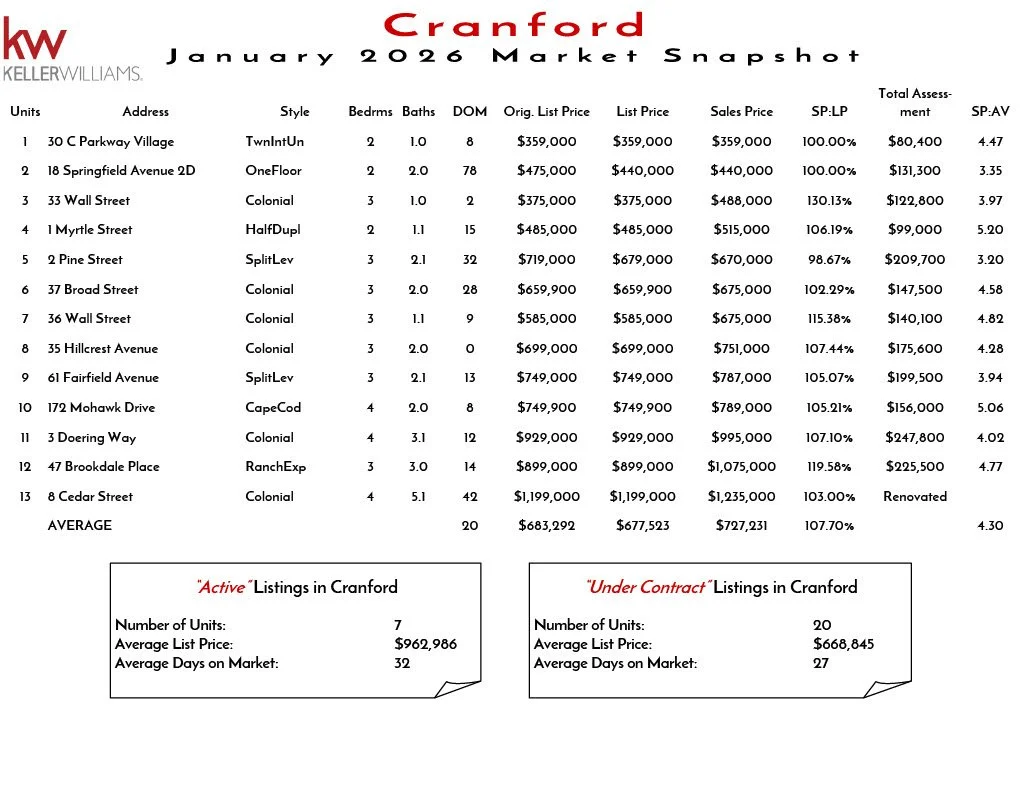 kw
KELLERWILLIAMS.
Cranford
January 2026 Market Snapshot
Units Address Style Bedrms Baths DOM Orig. List Price List Price Sales Price SP:LP Total Assess-ment SP:AV
1 30 C Parkway Village TwnIntUn 2 1.0 8 $359,000 $359,000 $359,000 100.00% $80,400 4.47
2 18 Springfield Avenue 2D OneFloor 2 2.0 78 $475,000 $440,000 $440,000 100.00% $131,300 3.35
3 33 Wall Street Colonial 3 1.0 2 $375,000 $375,000 $488,000 130.13% $122,800 3.97
4 1 Myrtle Street HalfDupl 2 1.1 15 $485,000 $485,000 $515,000 106.19% $99,000 5.20
5 2 Pine Street SplitLev 3 2.1 32 $719,000 $679,000 $670,000 98.67% $209,700 3.20
6 37 Broad Street Colonial 3 2.0 28 $659,900 $659,900 $675,000 102.29% $147,500 4.58
7 36 Wall Street Colonial 3 1.1 9 $585,000 $585,000 $675,000 115.38% $140,100 4.82
8 35 Hillcrest Avenue Colonial 3 2.0 0 $699,000 $699,000 $751,000 107.44% $175,600 4.28
9 61 Fairfield Avenue SplitLev 3 2.1 13 $749,000 $749,000 $787,000 105.07% $199,500 3.94
10 172 Mohawk Drive CapeCod 4 2.0 8 $749,900 $749,900 $789,000 105.21% $156,000 5.06
11 3 Doering Way Colonial 4 3.1 12 $929,000 $929,000 $995,000 107.10% $247,800 4.02
12 47 Brookdale Place RanchExp 3 3.0 14 $899,000 $899,000 $1,075,000 119.58% $225,500 4.77
13 8 Cedar Street Colonial 4 5.1 42 $1,199,000 $1,199,000 $1,235,000 103.00% Renovated
AVERAGE 20 $683,292 $677,523 $727,231 107.70% 4.30
"Active" Listings in Cranford
Number of Units: 7
Average List Price: $962,986
Average Days on Market: 32
"Under Contract" Listings in Cranford
Number of Units: 20
Average List Price: $668,845
Average Days on Market: 27